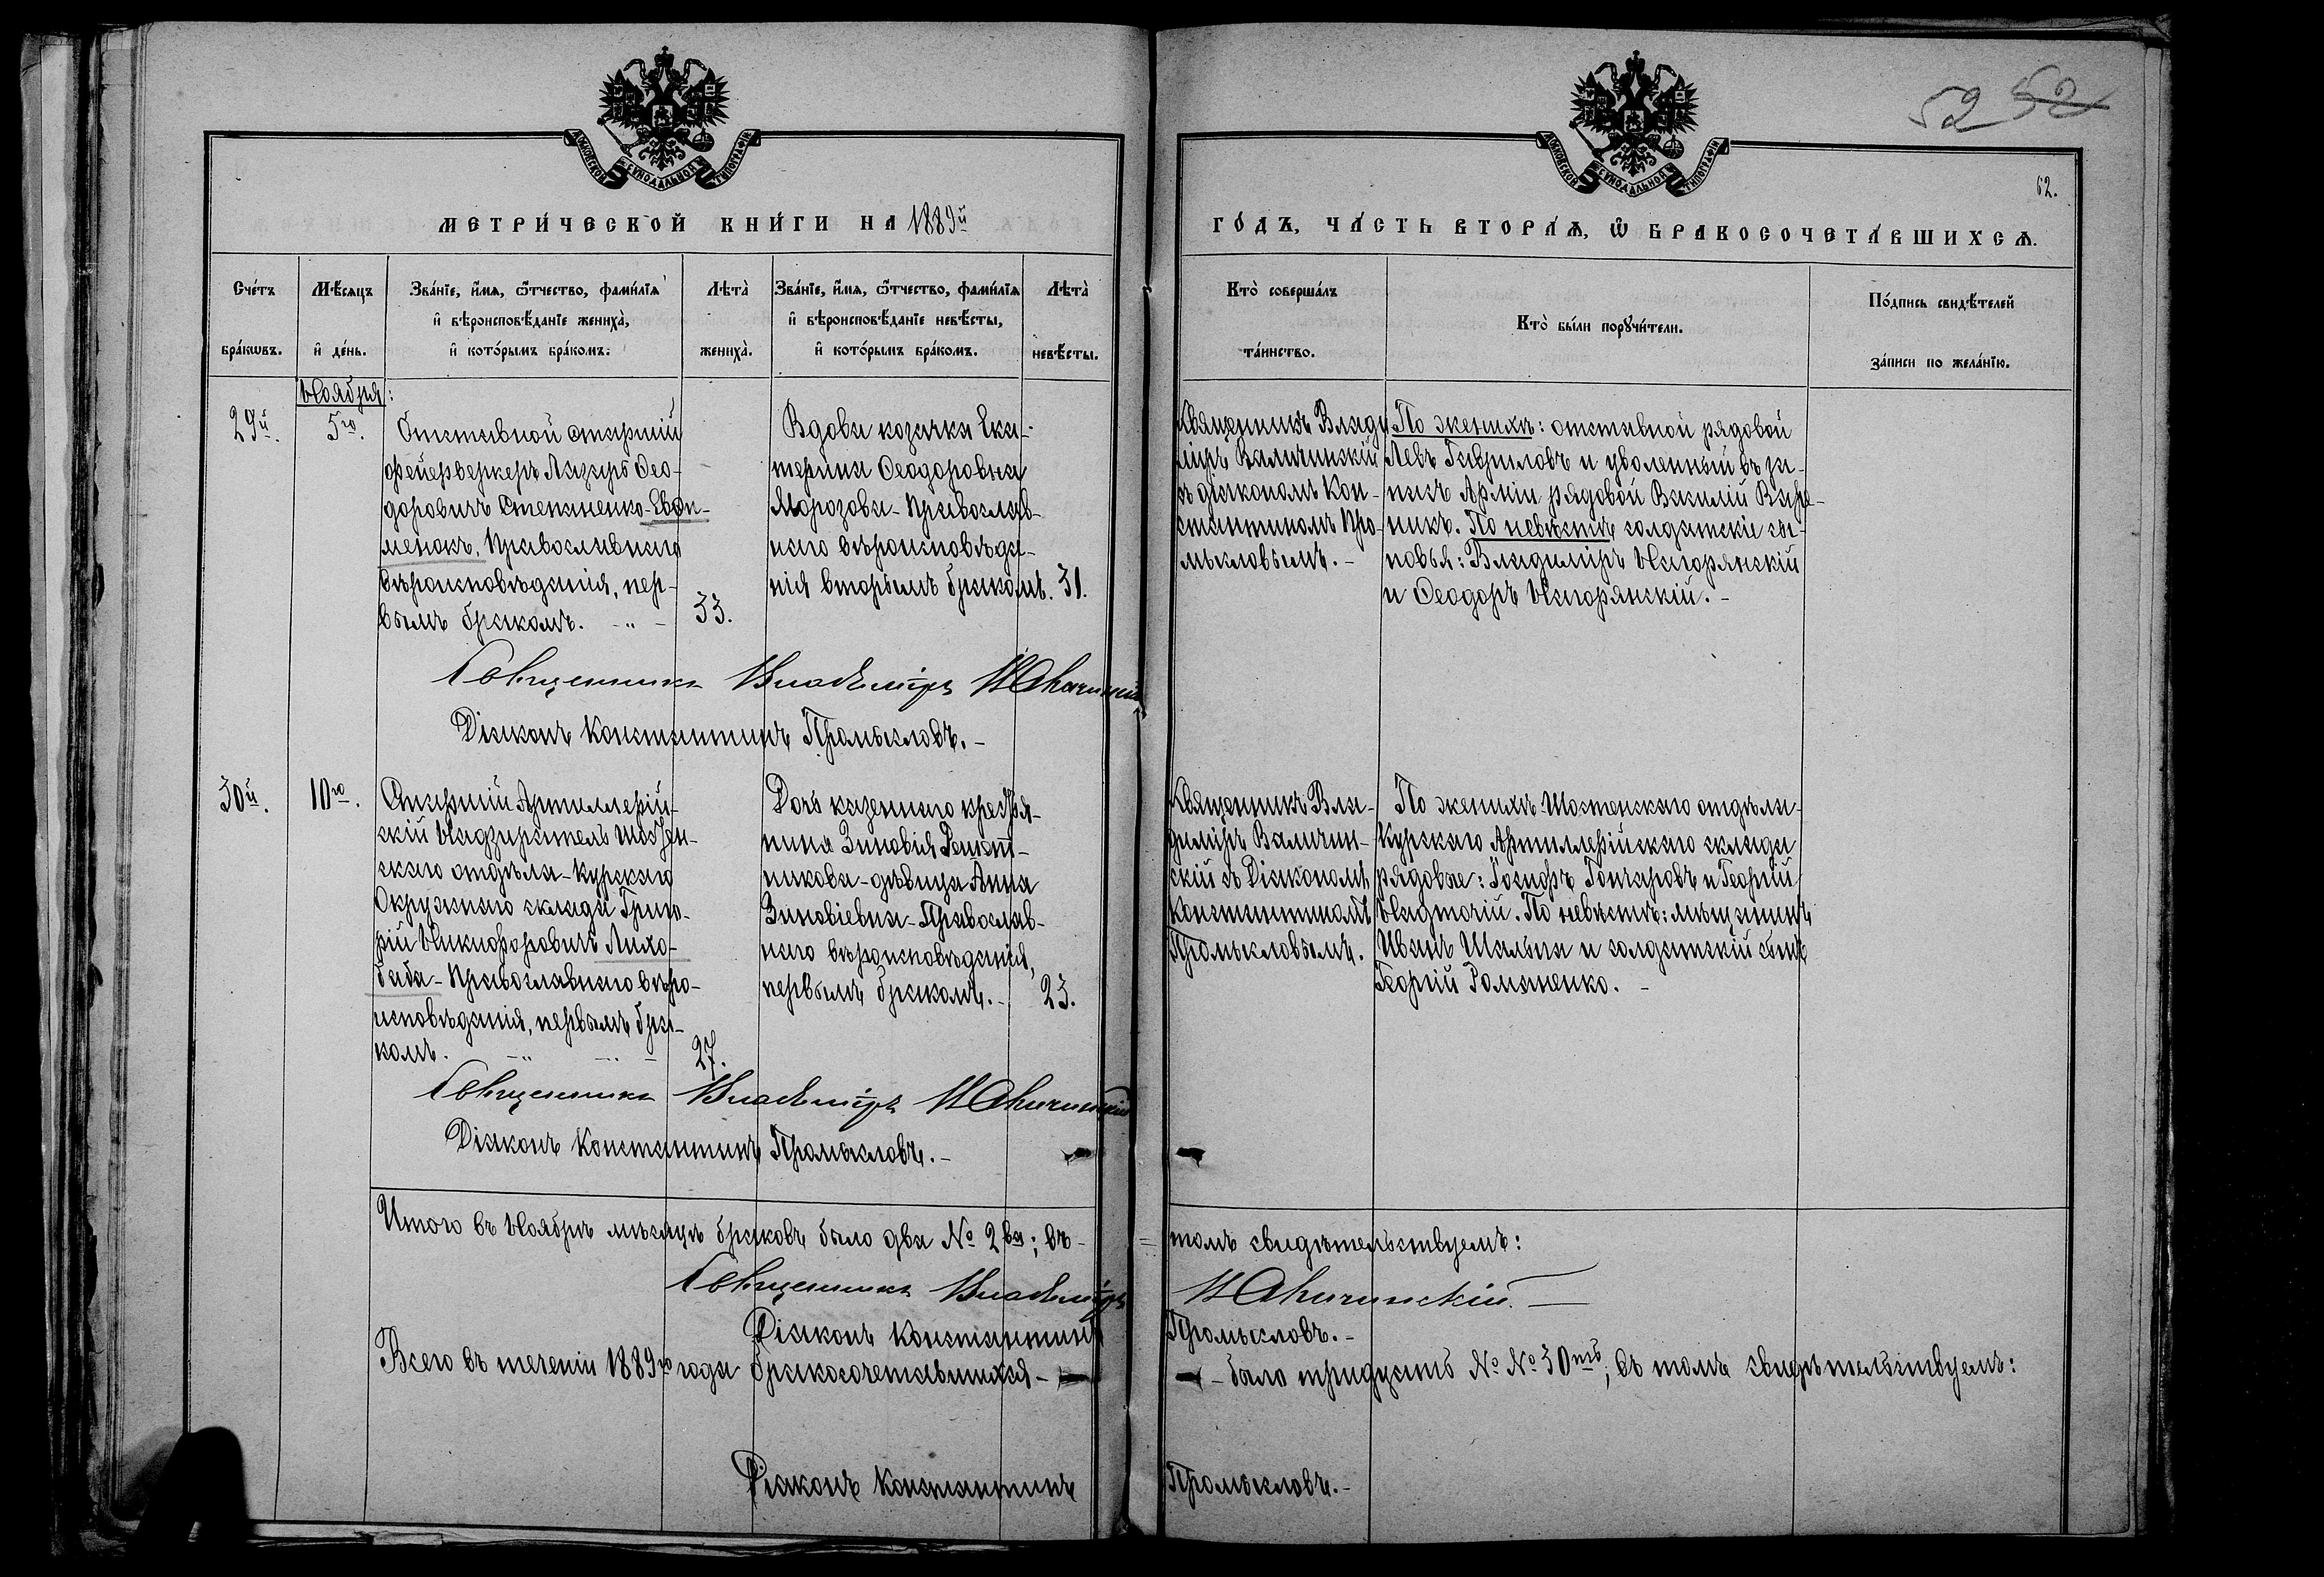 52 52
МОСКОВСКОЙ СѴНОДАЛЬНОЙ ТИПОГРАФІИ
МОСКОВСКОЙ СѴНОДАЛЬНОЙ ТИПОГРАФІИ
62.
МЕТРИ́ЧЕСКОЙ КНИ́ГИ НА 1889й
ГО́ДЪ, ЧА́СТЬ ВТОРА́Ѧ, Ѽ БРАКОСОЧЕТА́ВШИХСѦ.
Сче́тъ
бра́кѡвъ.
Мѣ́сяцъ
и҆ де́нь.
Зва́нїе, и҆́мя, ѻ҆́тчество, фами́лїя
и҆ вѣроисповѣ́данїе жениха̀,
и҆ кото́рымъ бра́комъ.
Лѣта̀
жениха̀.
Зва́нїе, и҆́мя, ѻ҆́тчество, фами́лїя
и҆ вѣроисповѣ́данїе невѣ́сты,
и҆ кото́рымъ бра́комъ.
Лѣта̀
невѣ́сты.
Кто̀ соверша́лъ
та́инство.
Кто̀ бы́ли порꙋчи́тели.
По́дпись свидѣ́телей
за́писи по жела́нїю.
Ноября:
29й.
5го.
Отставной старшій
фейерверкеръ Лазарь Ѳео-
доровичъ Степаненко-
Православнаго
вѣроисповѣданія, пер-
вымъ бракомъ. - „ -
33.
Вдова козачка Ека-
терина Ѳеодоровна
Морозова - Православ-
наго вѣроисповѣда-
нія вторымъ бракомъ.
31.
Священникъ Влади
міръ
съ діакономъ Кон-
стантиномъ Про-
мысловымъ. -
По женихѣ: отставной рядовой
Левъ Гавриловъ и уволенный въ за-
пасъ Арміи рядовой Василій
По невѣстѣ солдатскіе сы-
новья: Владиміръ Нагорянскій
и Ѳеодоръ Нагорянскій. -
Священникъ Владиміръ
Діаконъ Константинъ Промысловъ. -
30й.
10го.
Старшій Артиллерій-
скій Надзиратель Шостен-
скаго отдѣла - Курскаго
Окружнаго склада Григо-
рій Никифоровичъ Лихо-
баба - Православнаго вѣро-
исповѣданія, первымъ бра-
комъ. - „ -
27.
Дочь казеннаго крестья-
нина Зиновія Решет-
никова - дѣвица Анна
Зиновіевна - Православ-
наго вѣроисповѣданія,
первымъ бракомъ. -
23.
Священникъ Вла-
диміръ
скій съ Діакономъ
Константиномъ
Промысловымъ.
По женихѣ Шостенскаго отдѣла -
Курскаго Артиллерійскаго склада
рядовые: Іосифъ Гончаровъ и Георгій
По невѣстѣ: мѣщанинъ
Иванъ и солдатскій сынъ
Георгій Романенко. -
Священникъ Владиміръ
Діаконъ Константинъ Промысловъ. -
Итого въ Ноябрѣ мѣсяцѣ браковъ было два № 2ва; въ -
= томъ свидѣтельствуемъ:
Священникъ Владиміръ
Діаконъ Константинъ Промысловъ. -
Всего въ теченіи 1889го года бракосочетавшихся -
- было тридцать № № 30ть; въ томъ свидѣтельствуемъ:
Діаконъ Константинъ Промысловъ. -